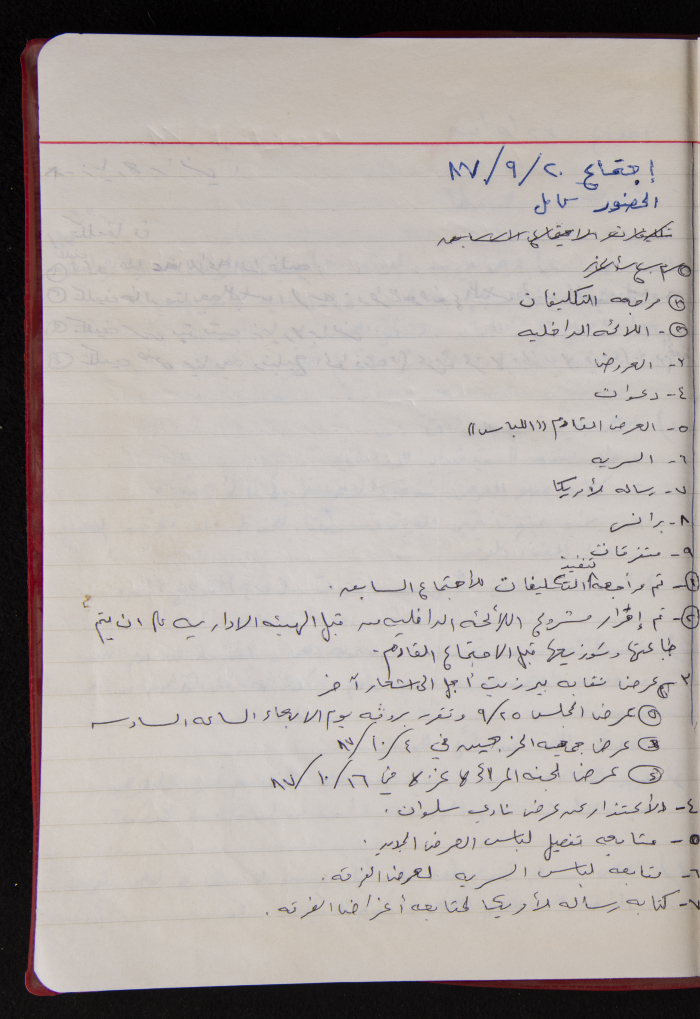 إجتماع ٢٠/٩/٨٧
الحضور كامل
١) مراجعه التكليفات
٢- اللائحه الداخليه
٣- العروض
٤- دعوات
٥- العرض القادم ((اللباس))
٦- السريه
٧- رساله لأمريكا
٨-
٩- متفرقات
تنفيذ
١- تم مراجعة التكليفات للأجتماع السابق.
٢- تم إقرار مشروع اللائحة الداخليه من قبل الهيئه الاداريه على ان يتم
طباعتها وتوزيعها قبل الاجتماع القادم.
٣- عرض نقابه بيرزيت أجل الى اشعار آخر
عرض المجلس ٩/٢٥ وتقرر بروڤه يوم الاربعاء الساعه السادسه
عرض جمعيه الخريجين في ٤/١٠/٨٧
عرض لجنه المرأه لا غزه في ١٦/١٠/٨٧
٤- الأعتذار عن عرض نادي سلوان.
٥- متابعه تفصيل لباس العرض الجديد.
٦- متابعه لباس السريه لعرض الفرقه.
٧- كتابه رساله لأمريكا لمتابعه أغراض الفرقه.